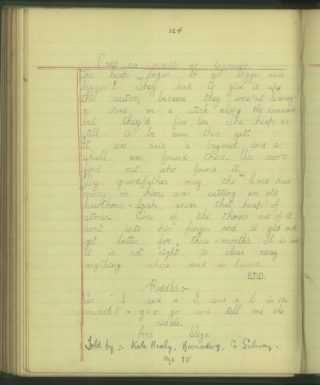 124
Carn na
The heap began to get bigger and
bigger! They had to give it up
this custom, because they weren't leaving
a stone or a stick along the
but they'd fire in. The heap is
still to be seen there yet.
It was said a bayonet and a
skull was found there. We can't
find out who found it.
My grandfather may the Lord have
mercy on him, was cutting an old
hawthorn-bush, under that heap of
stones. One of the thorns out of it
went into his finger and it did not
get better for three-months. It is said
it is not right to clear away
anything where dead is buried.
END.
Riddle:-
An "S and a S and a l in the
middle! g-o go and tell me the
riddle.
Ans Sligo
Told by :- Kate Healy, Co Galway.
Age 75